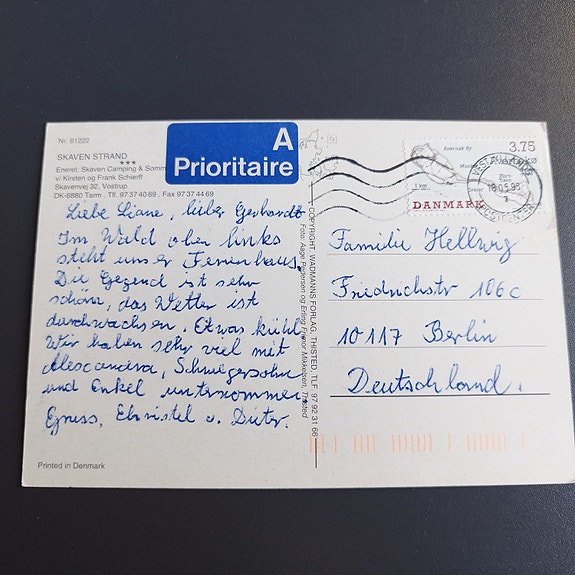 Nr. 81222
SKAVEN STRAND
***
Eneret: Skaven Camping & Somm
v/ Kirsten og Frank Schierff
Skavenvej 32, Vostrup
DK-6880 Tarm . Tlf. 97 37 40 69 . Fax 97 37 44 69
A
Prioritaire
Liebe Liane, lieber Gerhardt
Im Wald oben links
steht unser Ferienhaus.
Die Gegend ist sehr
schön, das Wetter ist
durchwachsen. Etwas kühl.
Wir haben sehr viel mit
Alescandra, Schwiegersohn
und Enkel unternommen.
Gruss, Christel u. Dieter.
Printed in Denmark
COPYRIGHT: WADMANNS FORLAG, THISTED, TLF. 97 92 31 66
Foto: Aage Pedersen og Erling Mikkelsen, Thisted
3.75
1 km
DANMARK
Familie Hellwig
Friedrichstr 106c
10117 Berlin
Deutschland.